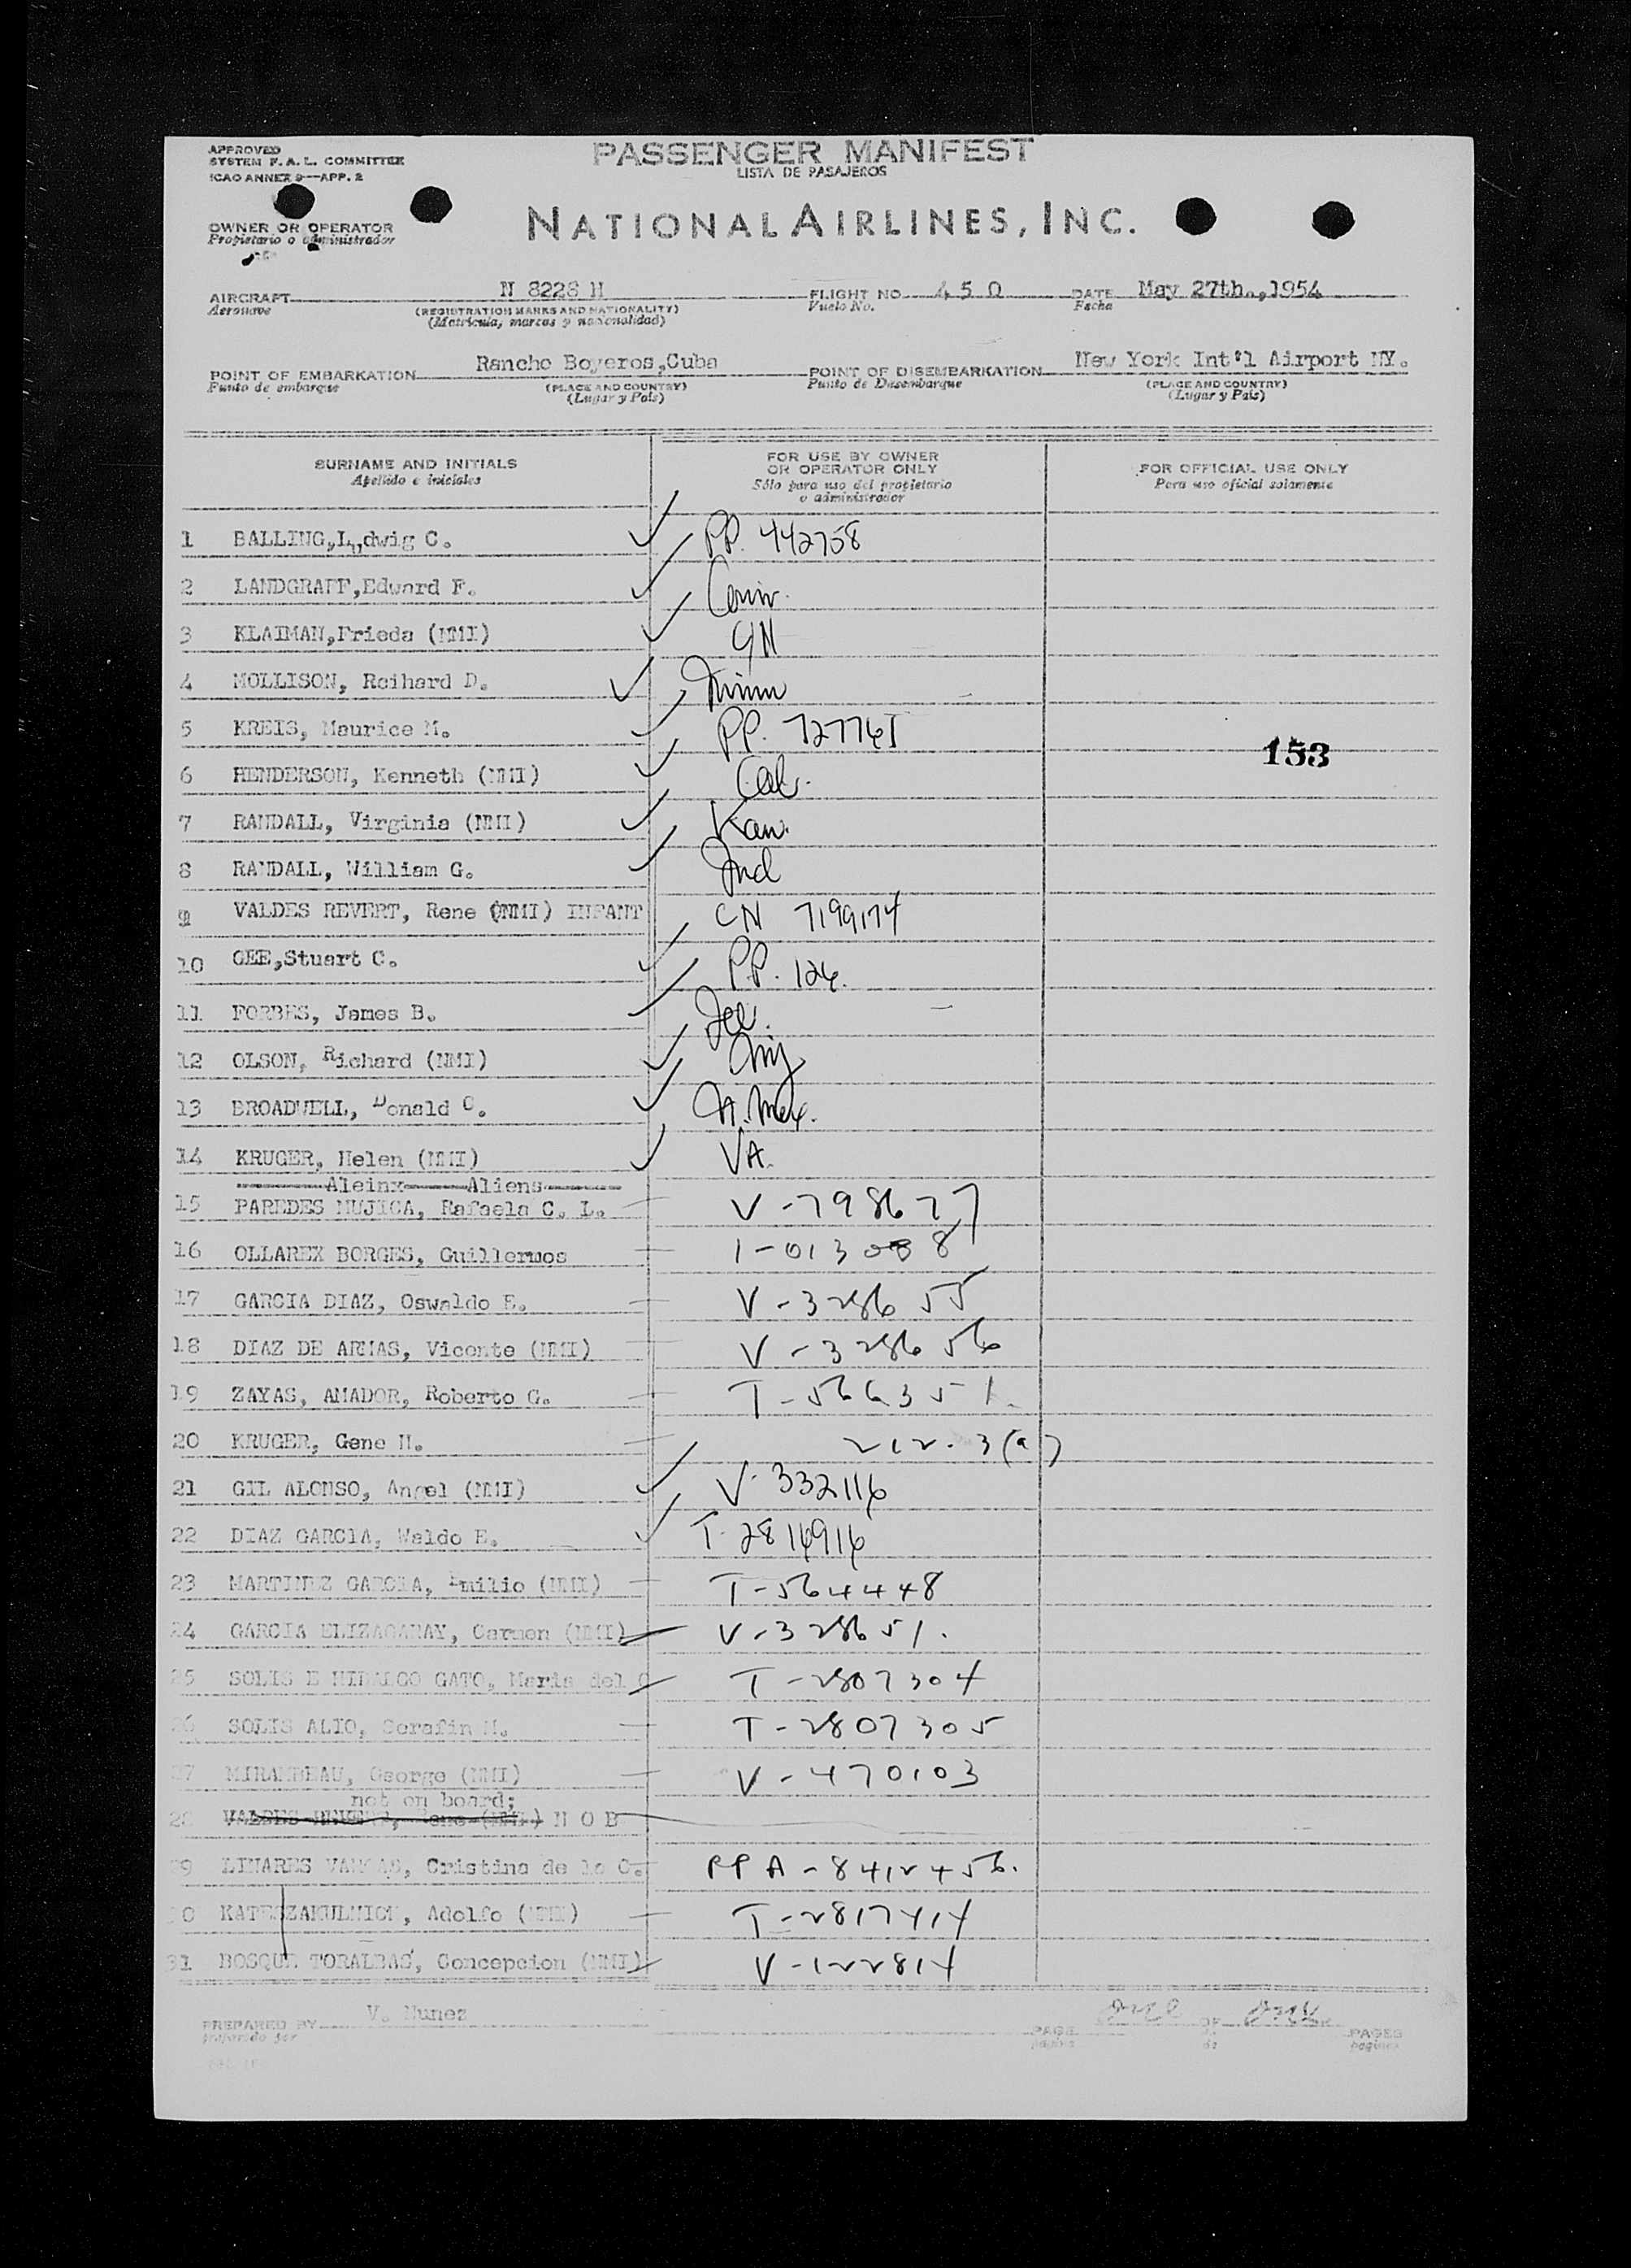 APPROVED
SYSTEM F. A. L. COMMITTEE
ICAO ANNEX 9—APP. 2
PASSENGER MANIFEST
LISTA DE PASAJEROS
OWNER OR OPERATOR
Propietario o administrador
NATIONAL AIRLINES, INC.
AIRCRAFT N 8228 H FLIGHT NO. 4 5 0 DATE May 27th.,1954
Aeronave (REGISTRATION MARKS AND NATIONALITY) Vuelo No. Fecha
(Matricula, marcas y nacionalidad)
POINT OF EMBARKATION Rancho Boyeros,Cuba POINT OF DISEMBARKATION New York Int'l Airport NY.
Punto de embarque (PLACE AND COUNTRY) Punto de Desembarque (PLACE AND COUNTRY)
(Lugar y País) (Lugar y País)
SURNAME AND INITIALS FOR USE BY OWNER OR OPERATOR ONLY FOR OFFICIAL USE ONLY
Apellido e iniciales Sólo para uso del propietario o administrador Para uso oficial solamente
1 BALLING,Ludwig C. PP. 442758
2 LANDGRAFF,Edward F. Conn.
3 KLAIMAN,Frieda (NMI) C/N
4 MOLLISON, Reihard D. Minn
5 KREIS, Maurice M. PP.
153
6 HENDERSON, Kenneth (NMI) Cal.
7 RANDALL, Virginia (NMI) Kan.
8 RANDALL, William G. Ind
9 VALDES REVERT, Rene (NMI) INFANT CN 7199174
10 GEE,Stuart C. PP. 126.
11 FORBES, James B.
12 OLSON, Richard (NMI)
13 BROADWELL, Donald C. N. Mex.
14 KRUGER, Helen (NMI) VA.
Aleinx Aliens
15 PAREDES MUJICA, Rafaela C. L. V-798677
16 OLLAREX BORGES, Guillermos 1-013088
17 GARCIA DIAZ, Oswaldo E. V-328655
18 DIAZ DE ARMAS, Vicente (NMI) V-328656
19 ZAYAS, AMADOR, Roberto G. T-566351.
20 KRUGER, Gene H. 212.3(a)
21 GIL ALONSO, Angel (NMI) V-332116
22 DIAZ GARCIA, Waldo E. T-2816916
23 MARTINEZ GARCIA, Emilio (NMI) T-564448
24 GARCIA ELIZAGARAY, Carmen (NMI) V-328651.
25 SOLIS E HIDALGO GATO, Maria del C T-2807304
26 SOLIS ALIO, Serafin M. T-2807305
27 MIRAMBEAU, George (NMI) V-470103
not on board;
28 VALDES REVERT, Rene (NMI) N O B
29 LINARES VARGAS, Cristina de la C. PP A-8412456.
30 Adolfo (NMI) T-2817414
31 BOSQUE TORALBAS, Concepcion (NMI) V-122814
PREPARED BY V. Nunez PAGE one OF one PAGES
preparado por página de paginas